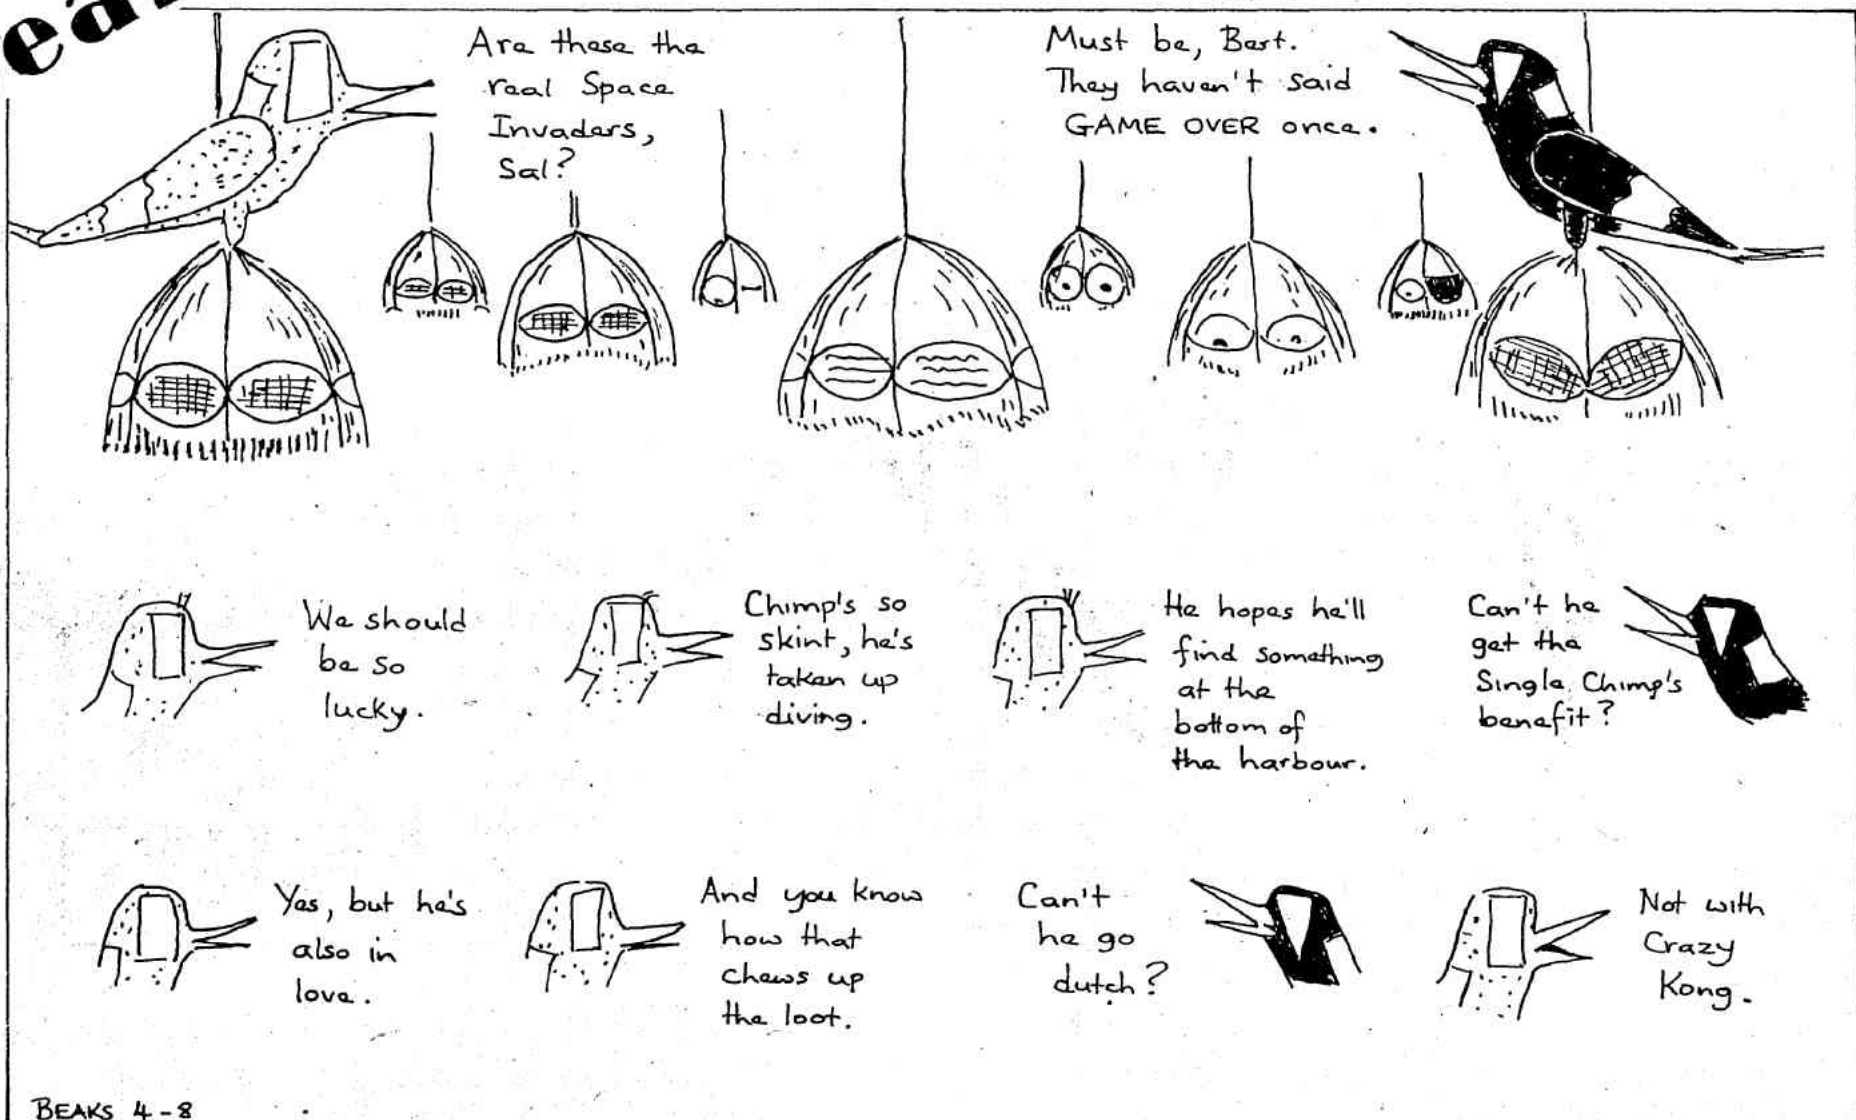 Are these the
real Space
Invaders,
Sal?
Must be, Bert.
They haven't said
GAME OVER once.
We should
be so
lucky.
Chimp's so
skint, he's
taken up
diving.
He hopes he'll
find something
at the
bottom of
the harbour.
Can't he
get the
Single Chimp's
benefit?
Yes, but he's
also in
love.
And you know
how that
chews up
the loot.
Can't
he go
dutch?
Not with
Crazy
Kong.
BEAKS 4-8